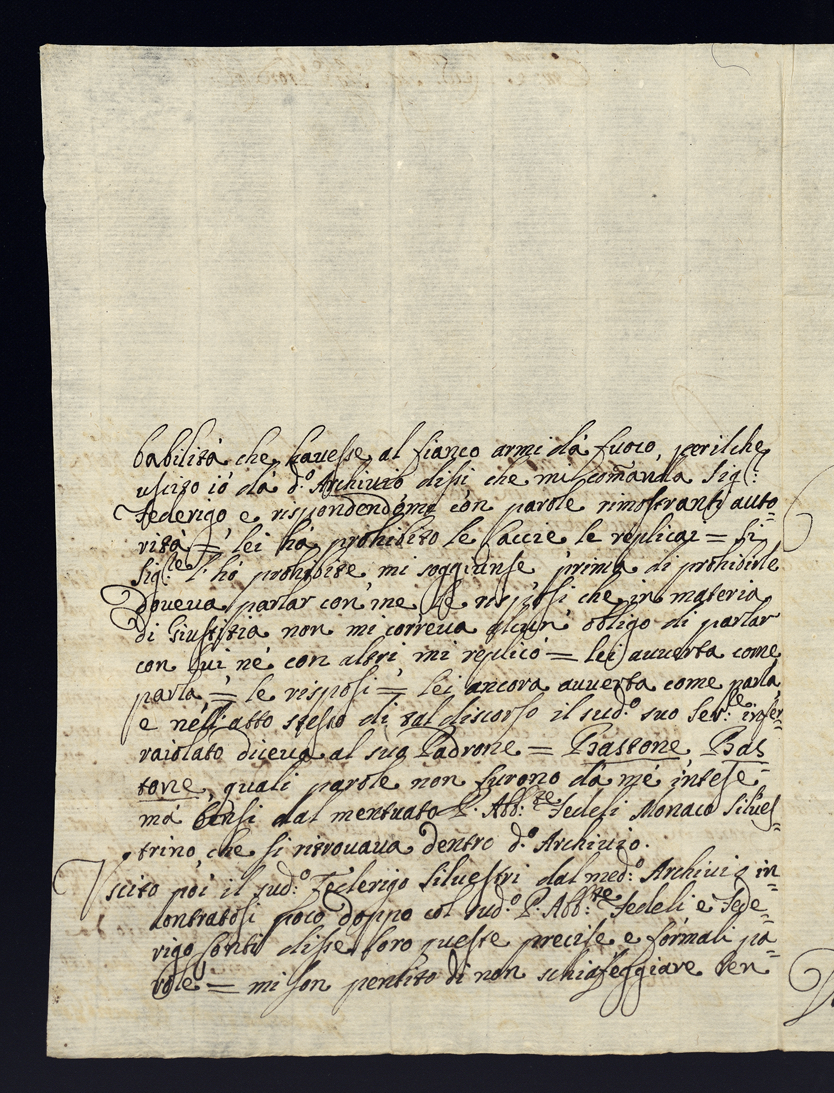 babilità che havesse al fianco armi dà fuoco, perilche
uscito iò dà d.º Archivio dissi che mi comanda Sig.r
Federigo e rispondendomi con parole rimostranti auto=
rità = lei hà prohibito le Caccie le replicai = Si
Sig.re l'hò prohibite mi soggiunse prima di prohibirle
doveva parlar con me le risposi che in materia
di Giustitia non mi correva alcun' obligo di parlar
con lui nè con altri, mi replicò = lei avverta come
parla = le risposi = lei ancora avverta come parla
e nell'atto stesso di tal discorso il sud.º suo Ser.re
raiolato diceva al suo Padrone = Bastone, Bas
tone, quali parole non furono dà mè intese=
mà bensì dal mentuato P. Abb.te Fedeli Monaco Silves=
trino che si ritrovava dentro d.º Archivio.
Uscito poi il sud.º Federigo Silvestri dal med.º Archivio in=
contratosi poco doppo col sud.º P. Abb.te Fedeli e Fede=
rigo Conti disse loro queste precise e formali pa=
role = mi son pentito di non schiaffeggiare ben